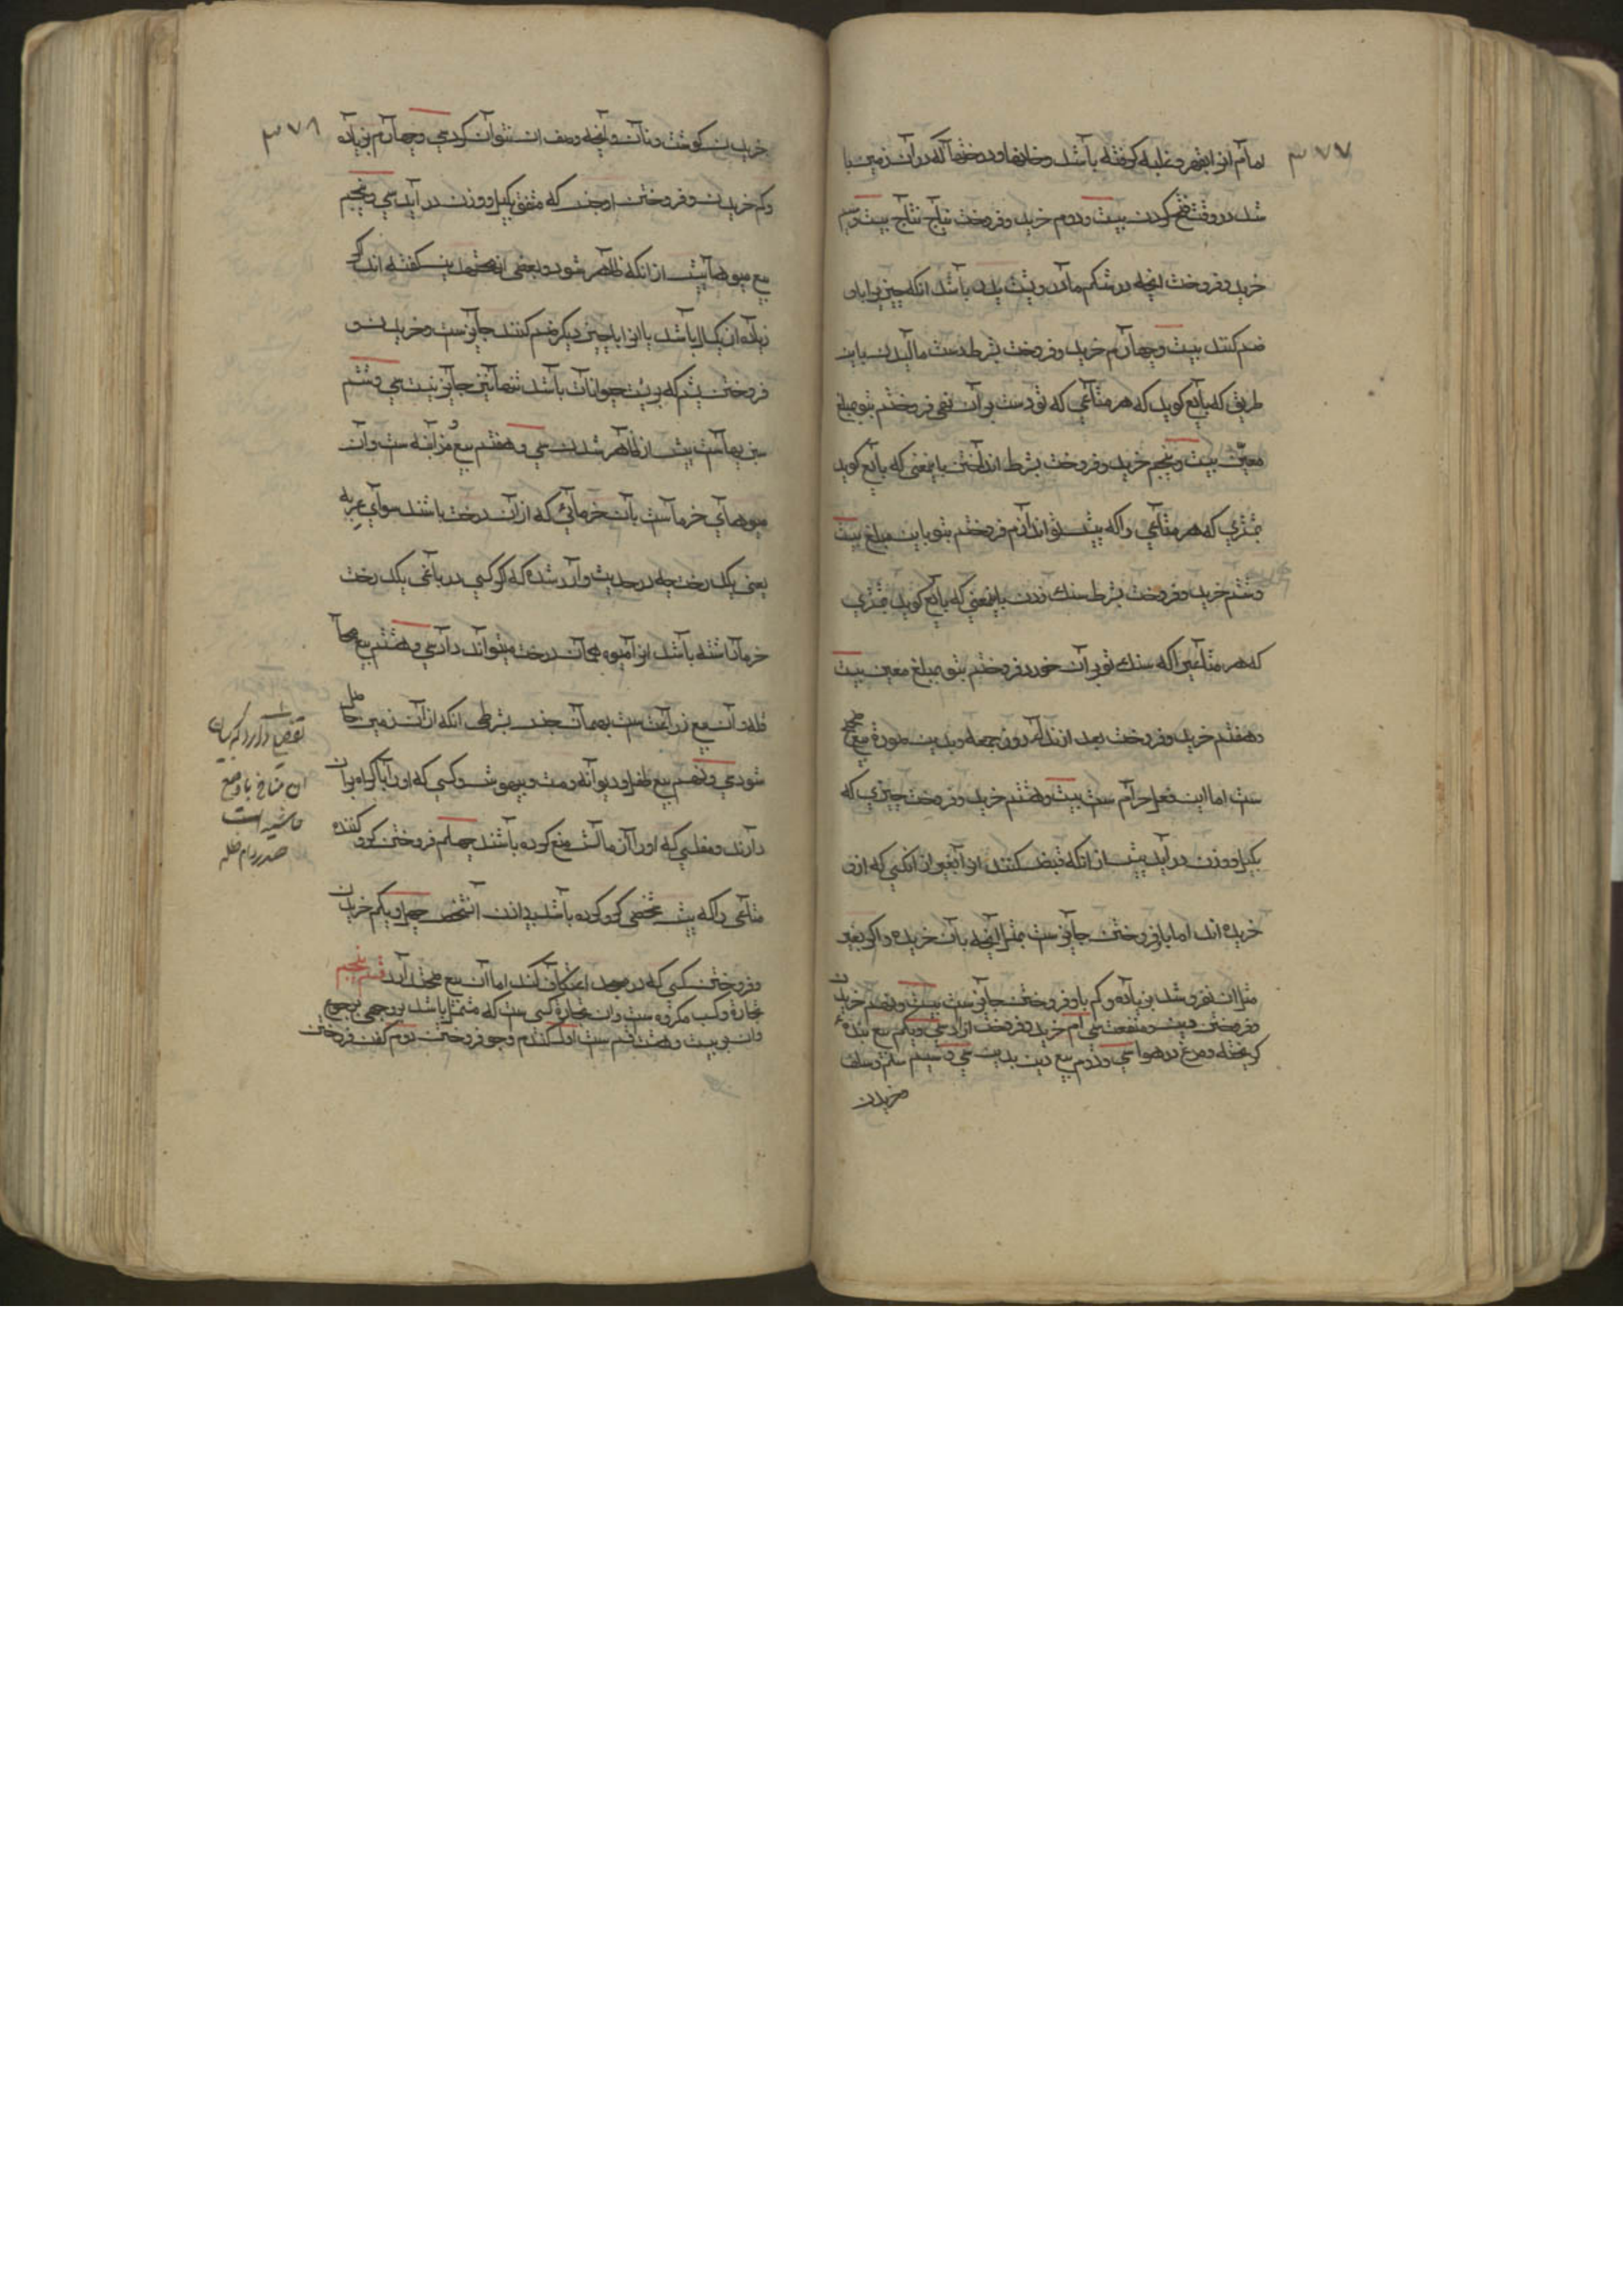 ۳۷۷
امام انرا بقهر و غلبه گرفته باشد و خانها و درختها که در آن زمین با
شد در وقت فتح کردن بیست و دوم خرید و فروخت نتاج نتاج بیست و سیم
خرید و فروخت انچه در شکم مادر و پشت پدر باشد انکه چیزیرا باو
ضم کنند بیست و چهارم خرید و فروخت بشرط دست مالیدن باین
طریق که بایع کوید که هر متاعی که تو دست بر آن نهی فروختم بتو بمبلغ
معیّن بیست و پنجم خرید و فروخت بشرط انداختن باینمعنی که بایع کوید
بمشتری که هر متاعی را که پیش تو اندازم فروختم بتو باین مبلغ بیست
و ششم خرید و فروخت بشرط سنك زدن باینمعنی که بایع کوید بمشتری
که هر متاعیرا که سنك تو بر آن خورد فروختم بتو بمبلغ معین بیست
و هفتم خرید و فروخت بعد از ندا در روز جمعه و بدین صورة بیع صحیح
ست اما این فعل حرام ست بیست و هشتم خرید و فروخت چیزی که
بکیل و وزن در آید پیش از انکه قبض کنند انرا بغیر از انکسی که ازو
خریده اند اما باو فروختن جایز ست بمثل انچه بآن خریده و اکر بغیر
مثل ان بفروشد بزیاده و کم باو فروختن جایز ست بیست و نهم خریدن
و فروختن دین و منفعت سی ام خرید و فروخت ازاد سی و یکم بیع بندهء
کریخته و مرغ در هوا سی و دوم بیع دین بدین سی و سیم سلم و سلف
خریدن
۳۷۸
خریدن کوشت و نان و انچه وصف ان نتوان کرد سی و چهارم بزیاده
و کم خریدن و فروختن دو جنس که متفق بکیل و وزن در آید سی و پنجم
بیع میوها پیش از انکه ظاهر شود و بعضی از مجتهدین کفته اند که اکر
زیاده از یکسال باشد یا انرا با چیزی دیکر ضم کنند جایز ست و خریدن و
فروختن پشم که بر پشت حیوانات باشد تنها نیز جایز نیست سی و ششم
سبزیهاست پیش از ظاهر شدن سی و هفتم بیع مُزابنه ست و آن
میوهای خرماست بآن خرمائی که از آن درخت باشند سوای عریه
یعنی یکدرخت چه در حدیث وارد شده که اکر کسی در باغی یکدرخت
خرما داشته باشد انرا میتواند داد سی و هشتم بیع محا
قله و آن بیع زراعت ست بهمان جنس بشرطی انکه از آن زمین حاصل
شود سی و نهم بیع طفل و دیوانه و مست و بیهوش و کسی که او را باکراه بران
دارند و مفلسی که او را از مالش منع کرده باشند چهلم فروختن کرو کننده
متاعی را که پیش شخصی کرو کرده باشد بیاذن آنشخص چهل و یکم خریدن
و فروختن کسی که در مسجد اعتکاف کند اما آن بیع صحة دارد قسم پنجم
تجارة و کسب مکروه ست و ان تجارة کسی ست که مشتمل باشد بر وجهی مرجوح
و ان بر بیست و هشت قسم ست اول کندم و جو فروختن دوم کفن فروختن
تفصیل دارد که بیان
ان
حاشیه است
صدر دام ظله